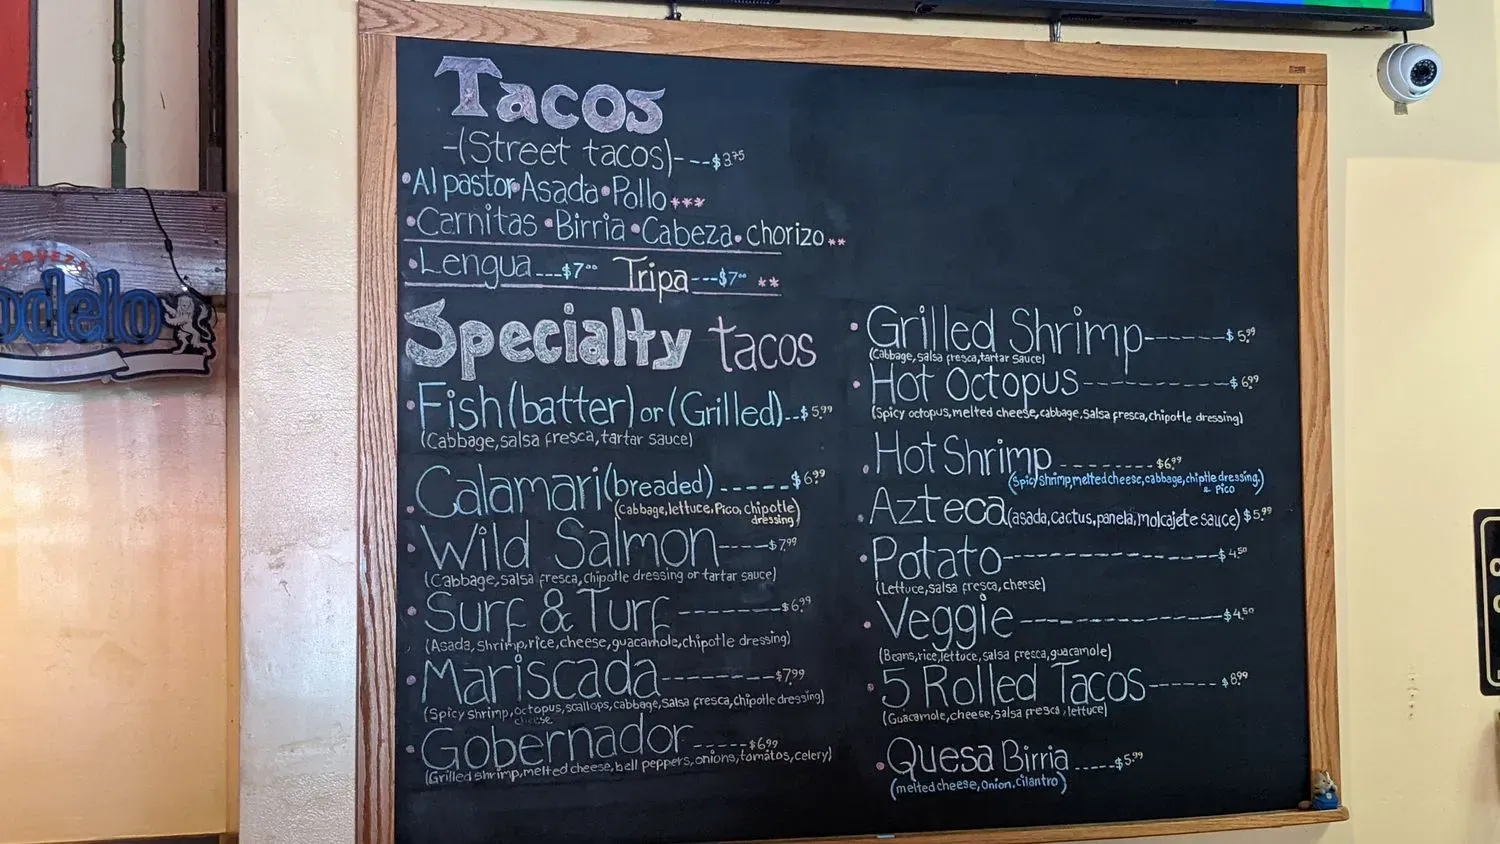 Tacos
-(Street tacos)---$3.75
•Al pastor•Asada•Pollo***
•Carnitas •Birria •Cabeza•chorizo**
•Lengua---$7.00 Tripa---$7.00 **
Specialty tacos
•Fish(batter) or (Grilled)--$5.99
(Cabbage,salsa fresca,tartar sauce)
•Calamari(breaded)-----$6.99
(Cabbage,lettuce,Pico,chipotle
dressing)
•Wild Salmon-----$7.99
(Cabbage,salsa fresca,chipotle dressing or tartar sauce)
•Surf & Turf--------$6.99
(Asada,shrimp,rice,cheese,guacamole,chipotle dressing)
•Mariscada--------$7.99
(Spicy shrimp,octopus,scallops,cabbage,salsa fresca,chipotle dressing)
cheese
•Gobernador-----$6.99
(Grilled shrimp,melted cheese,bell peppers,onions,tomatos,celery)
•Grilled Shrimp------$5.99
(Cabbage,salsa fresca,tartar sauce)
•Hot Octopus-----------$6.99
(Spicy octopus,melted cheese,cabbage,salsa fresca,chipotle dressing)
•Hot Shrimp---------$6.99
(Spicy shrimp,melted cheese,cabbage,chiptle dressing,
& Pico
•Azteca(asada,cactus,panela,molcajete sauce) $5.99
•Potato--------------$4.50
(Lettuce,salsa fresca,cheese)
•Veggie-------------$4.50
(Beans,rice,lettuce,salsa fresca,guacamole)
•5 Rolled Tacos------$8.99
(Guacamole,cheese,salsa fresca,lettuce)
•Quesa Birria-----$5.99
(melted cheese,Onion,cilantro)